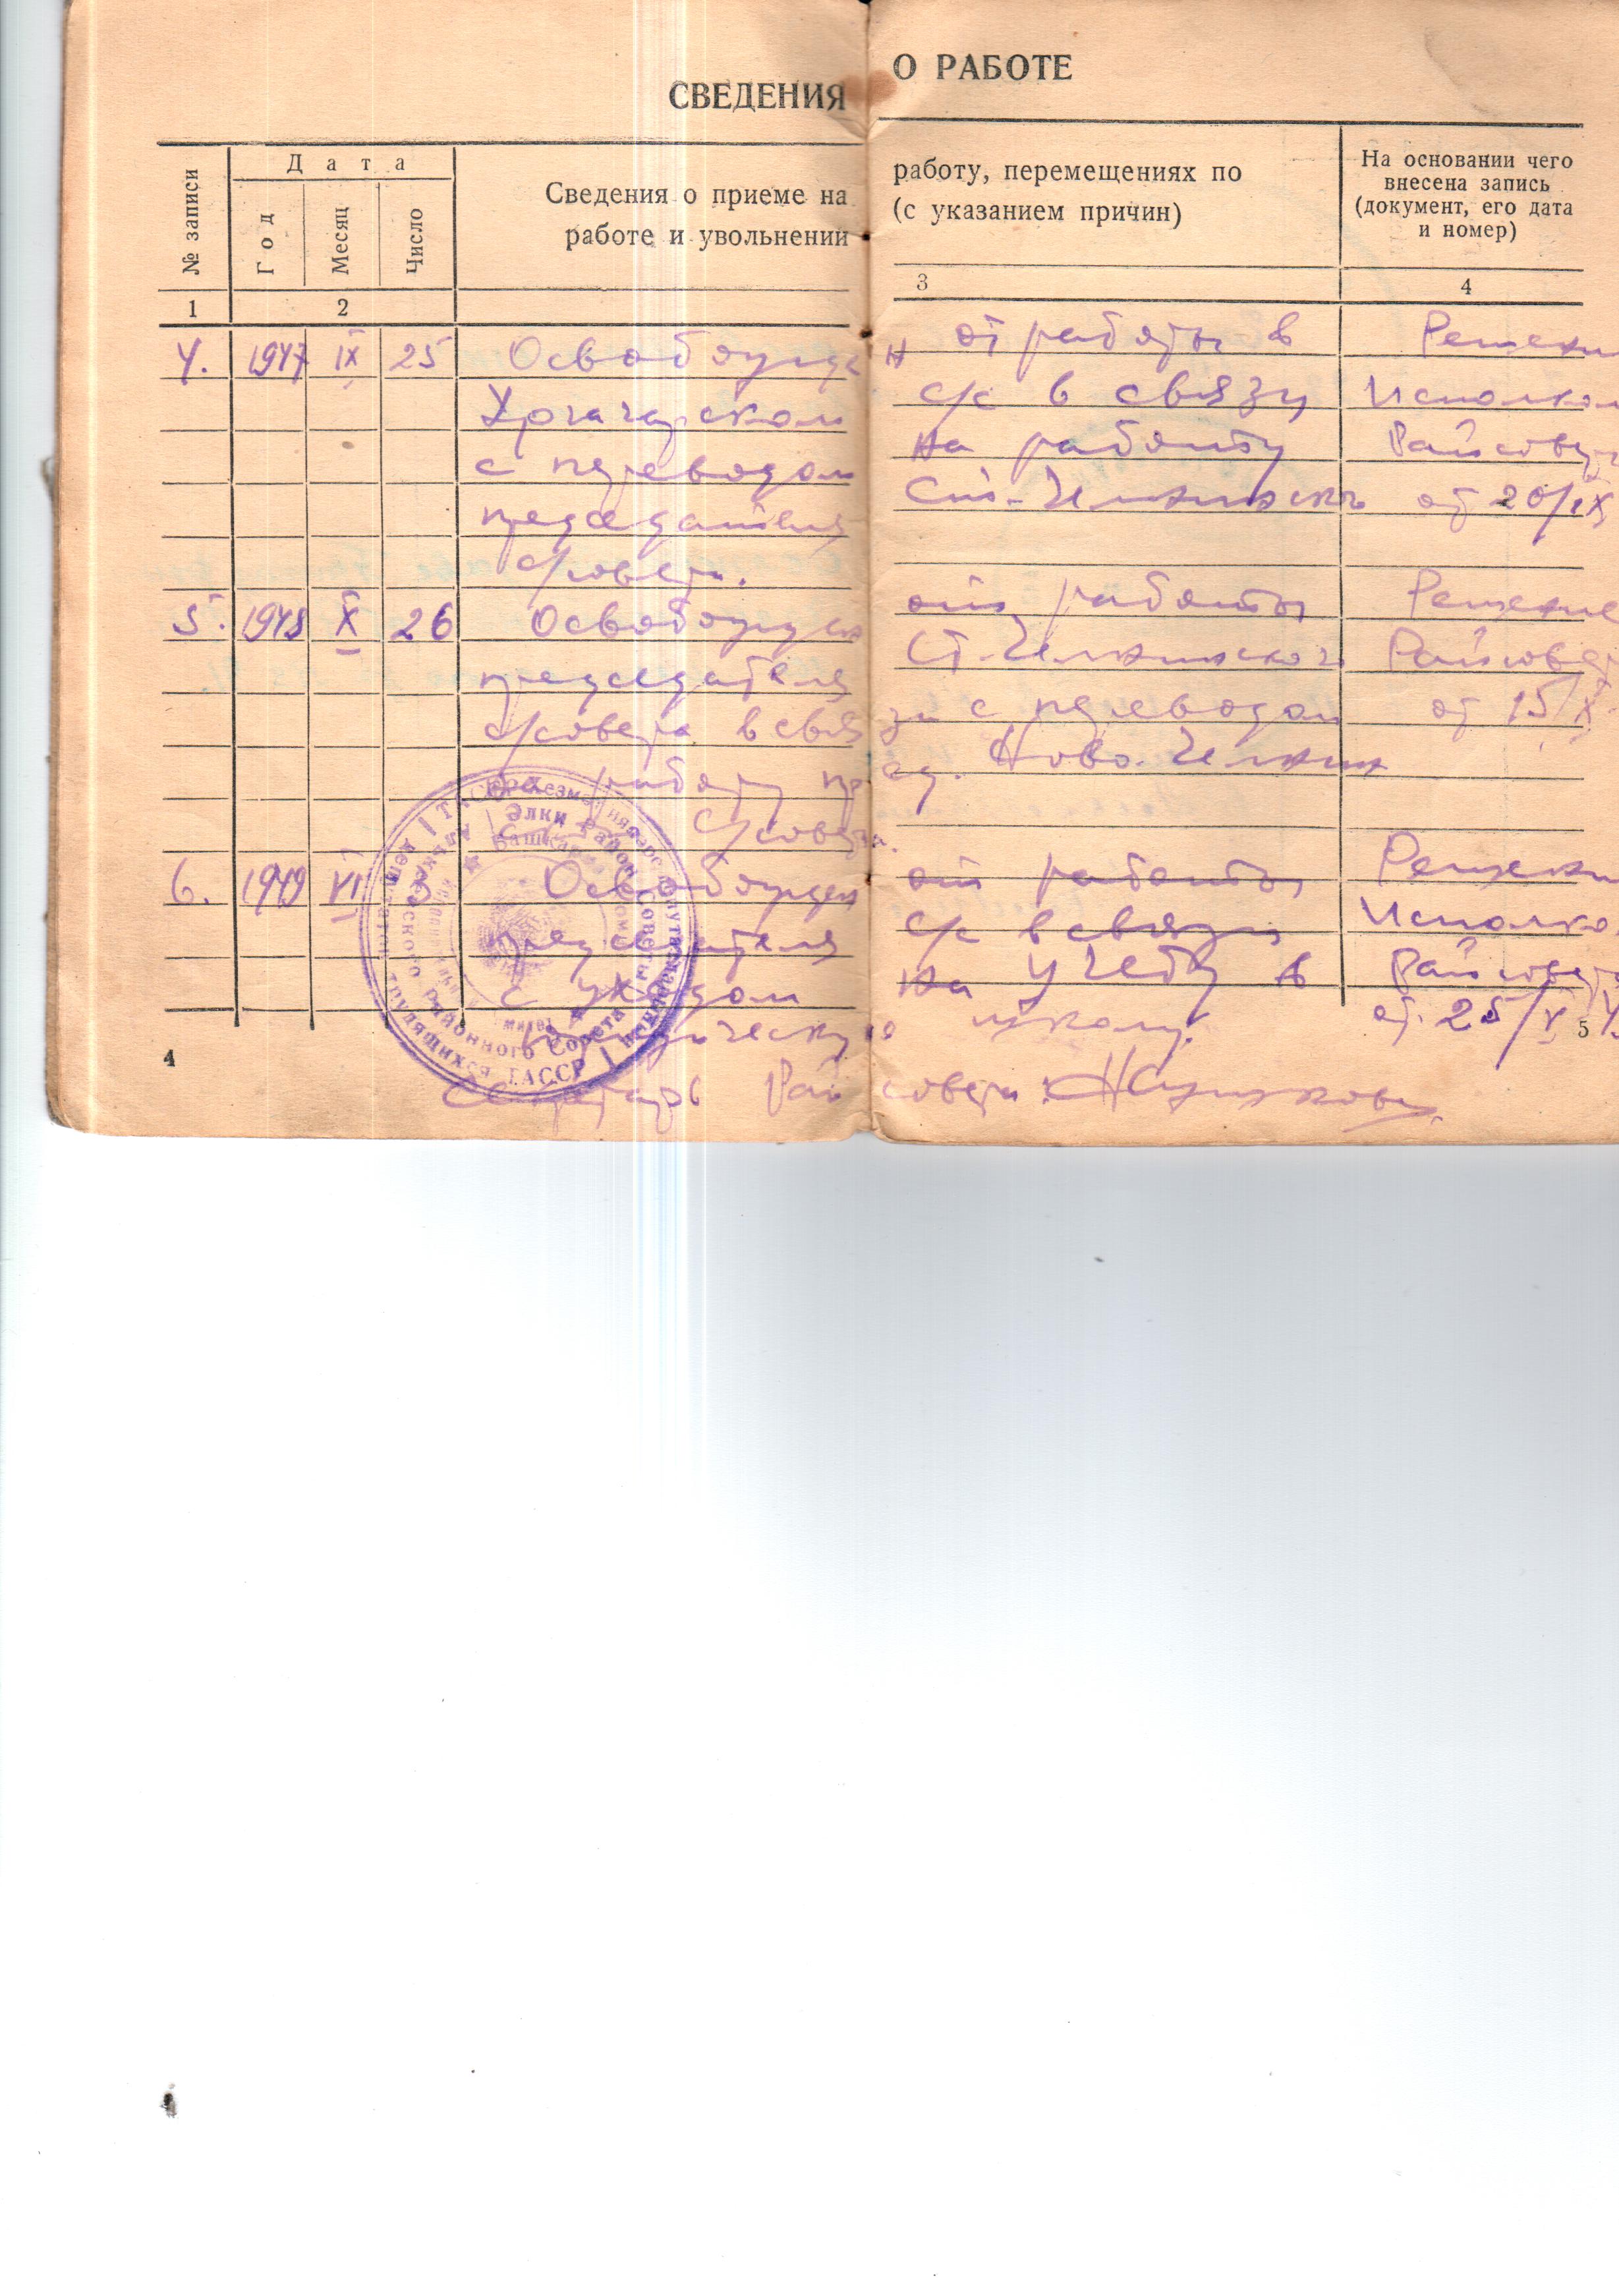 СВЕДЕНИЯ О РАБОТЕ
№ записи
Дата
Год
Месяц
Число
Сведения о приеме на работу, перемещениях по
работе и увольнении (с указанием причин)
На основании чего
внесена запись
(документ, его дата
и номер)
1 2 3 4
4. 1947 IX 25 Освобожден от работы в Решени
с/с в связи Исполком
с переводом на работу Райсовет
председателя Ст.-Челнинск от 20/IX
с/совета.
5. 1948 X 26 Освобожден от работы Решение
председателя Ст.-Челнинского Райсовет
с/совета в связи с переводом от 15/X
работу пред. Ново-Челнин
с/совета.
6. 1949 VI 3 Освобожден от работы Решени
председателя с/с в связи Исполко
с уходом на учебу в Райсовет
юридическую школу. от 25/V
4
5
Секретарь Райсовета:
Элки Район Советы
Алькеевского районного Совета
депутатов трудящихся ТАССР